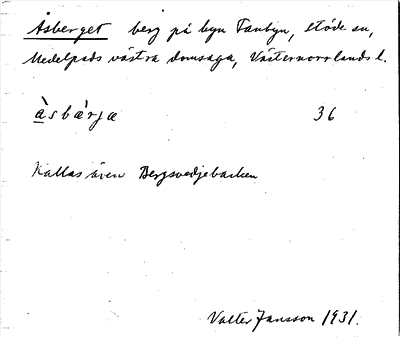 Åsberget berg på byn Fanbyn, Stöde sn,
Medelpads västra domsaga, Västernorrlands l.
àsbárjæ 36
Kallas även Bergsvedjebacken
Valter Jansson 1931.